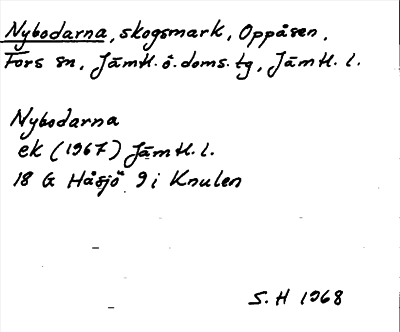 Nybodarna, skogsmark, Oppåsen,
Fors sn, Jämtl. ö. doms. tg, Jämtl. l.
Nybodarna
ek (1967) Jämtl. l.
18 G Håsjö 9 i Knulen
S. H 1968